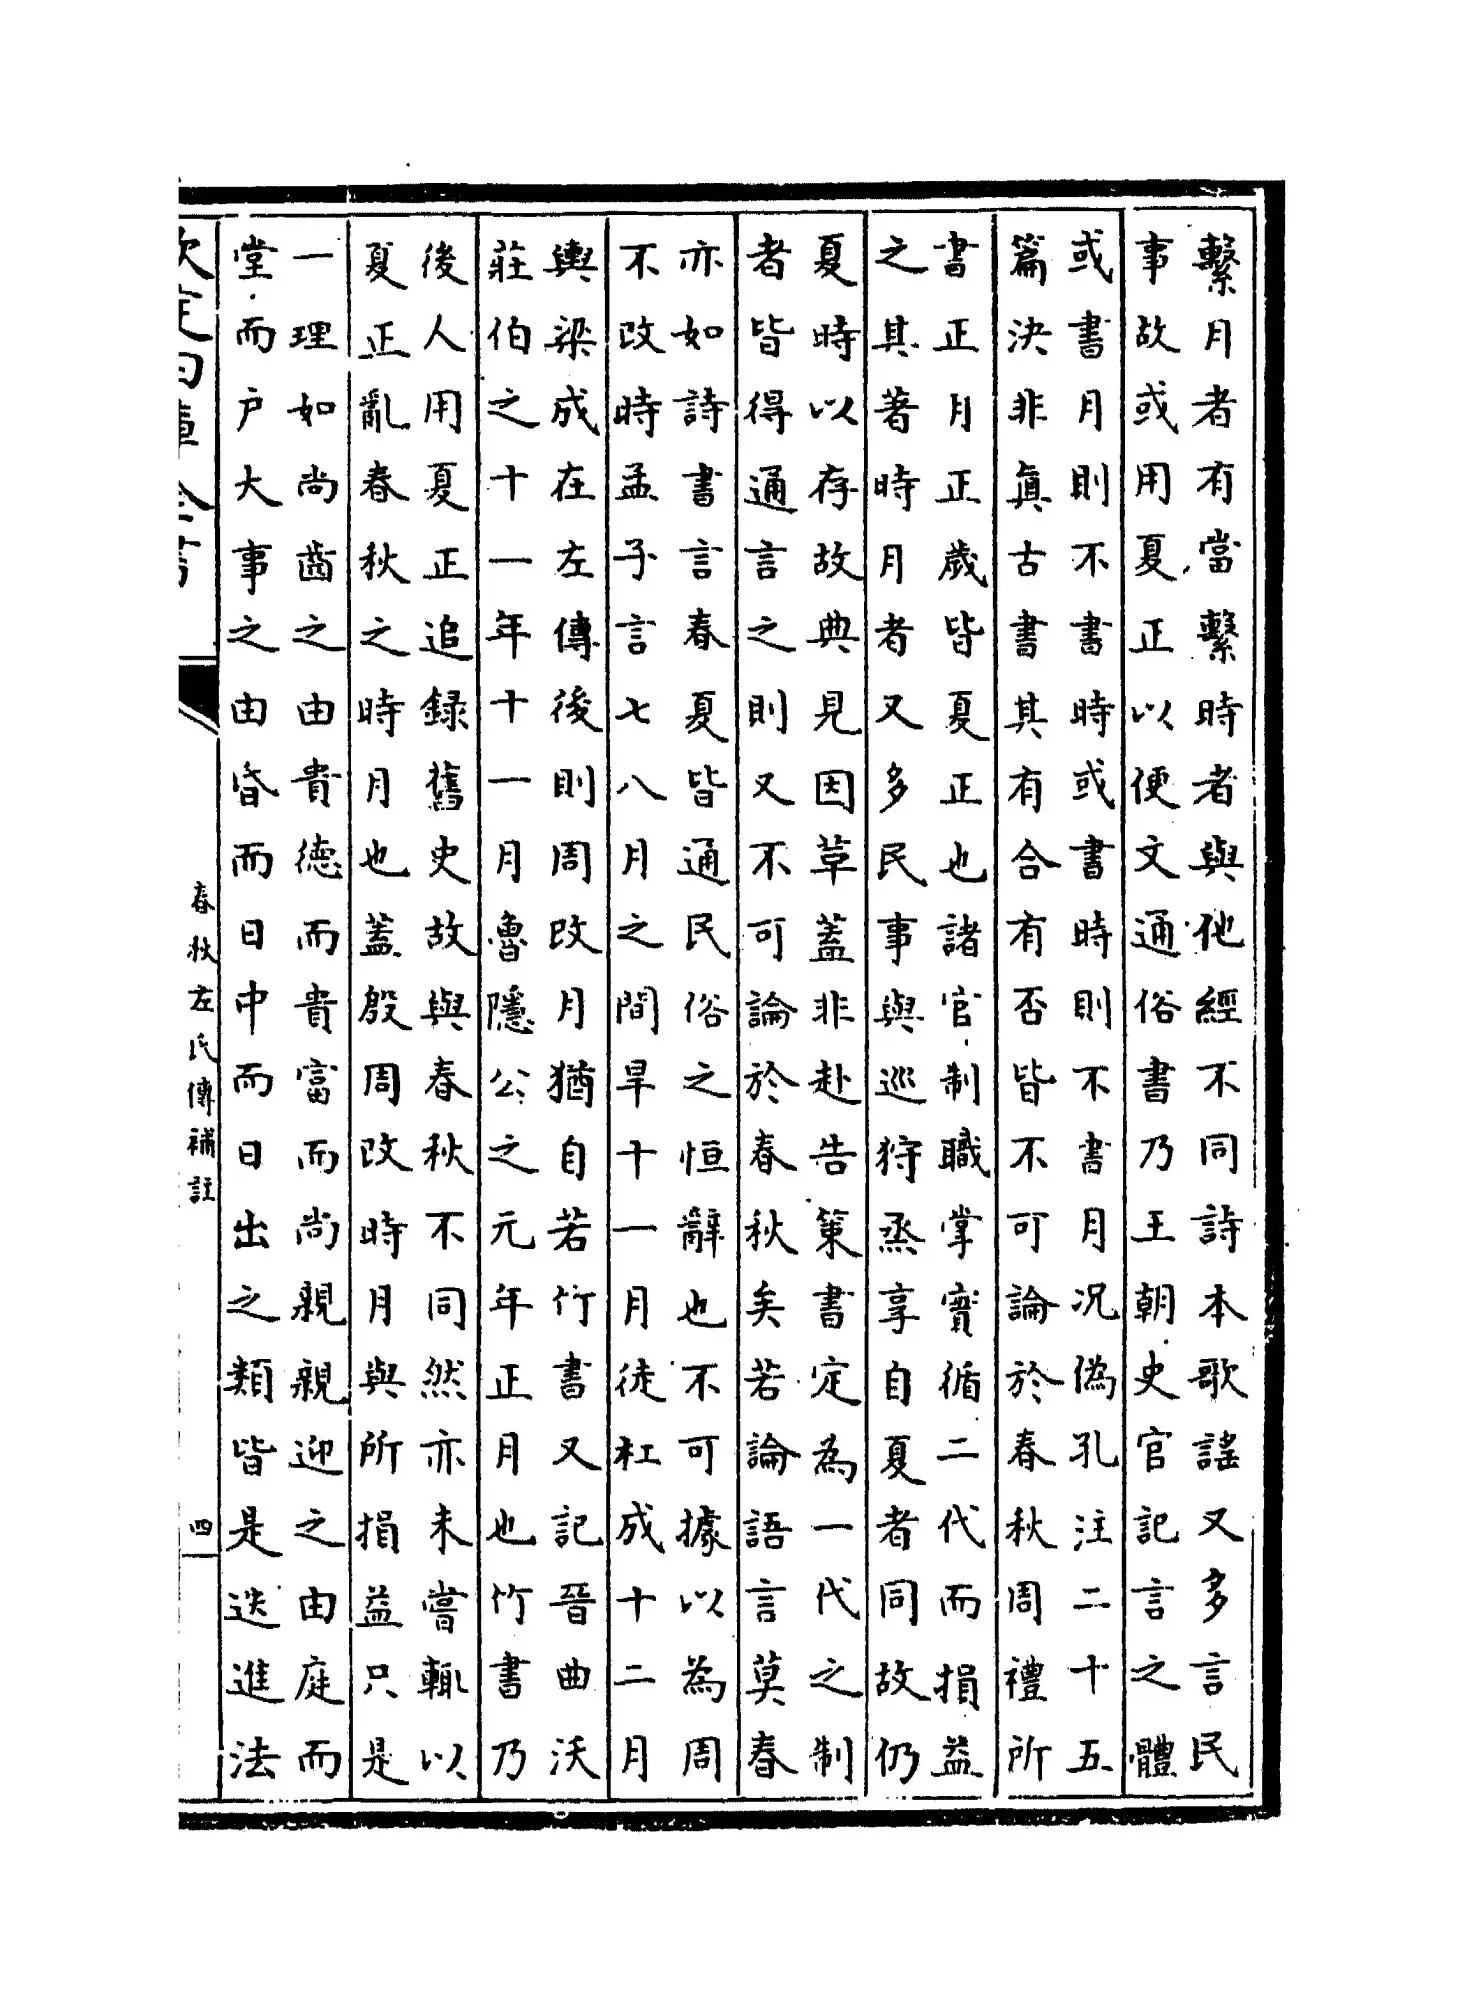 繫月者有當繫時者與他經不同詩本歌謡又多言民
事故或用夏正以便文通俗書乃王朝史官記言之體
或書月則不書時或書時則不書月况偽孔注二十五
篇決非真古書其有合有否皆不可論於春秋周禮所
書正月正歲皆夏正也諸官制職掌實循二代而損益
之其著時月者又多民事與巡狩烝享自夏者同故仍
夏時以存故典見因革蓋非赴告策書定為一代之制
者皆得通言之則又不可論於春秋矣若論語言莫春
亦如詩書言春夏皆通民俗之恒辭也不可據以為周
不改時孟子言七八月之間旱十一月徒杠成十二月
輿梁成在左傳後則周改月猶自若竹書又記晉曲沃
莊伯之十一年十一月魯隱公之元年正月也竹書乃
後人用夏正追録舊史故與春秋不同然亦未嘗輒以
夏正亂春秋之時月也蓋殷周改時月與所損益只是
一理如尚齒之由貴德而貴富而尚親親迎之由庭而
堂而户大事之由昏而日中而日出之類皆是迭進法
欽定四庫全書
春秋左氏傳補註
四